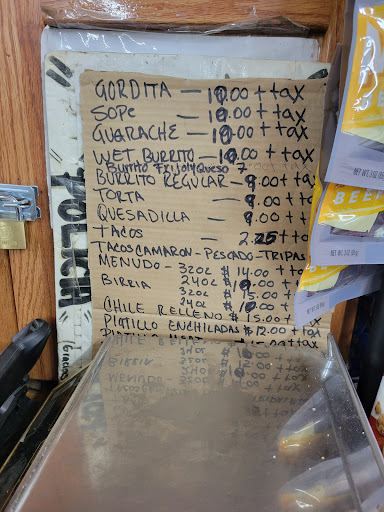 GORDITA — 10.00 + tax
SOPE — 10.00 + tax
GUARACHE — 10.00 + tax
WET BURRITO — 10.00 + tax
Burrito Frijol y Queso 7
BURRITO REGULAR — 9.00 + t
TORTA — 9.00 + t
QUESADILLA — 9.00 + t
TACOS — 2.25 + to
TACOS CAMARON - PESCADO - TRIPAS
MENUDO - 32oz $14.00 + ta
24oz
BIRRIA 32oz $15.00 +
24oz 10.00 +
CHILE RELLENO $15.00 +
PLATILLO ENCHILADAS $12.00 + tax
BEEF
NET WT. 3 OZ (85